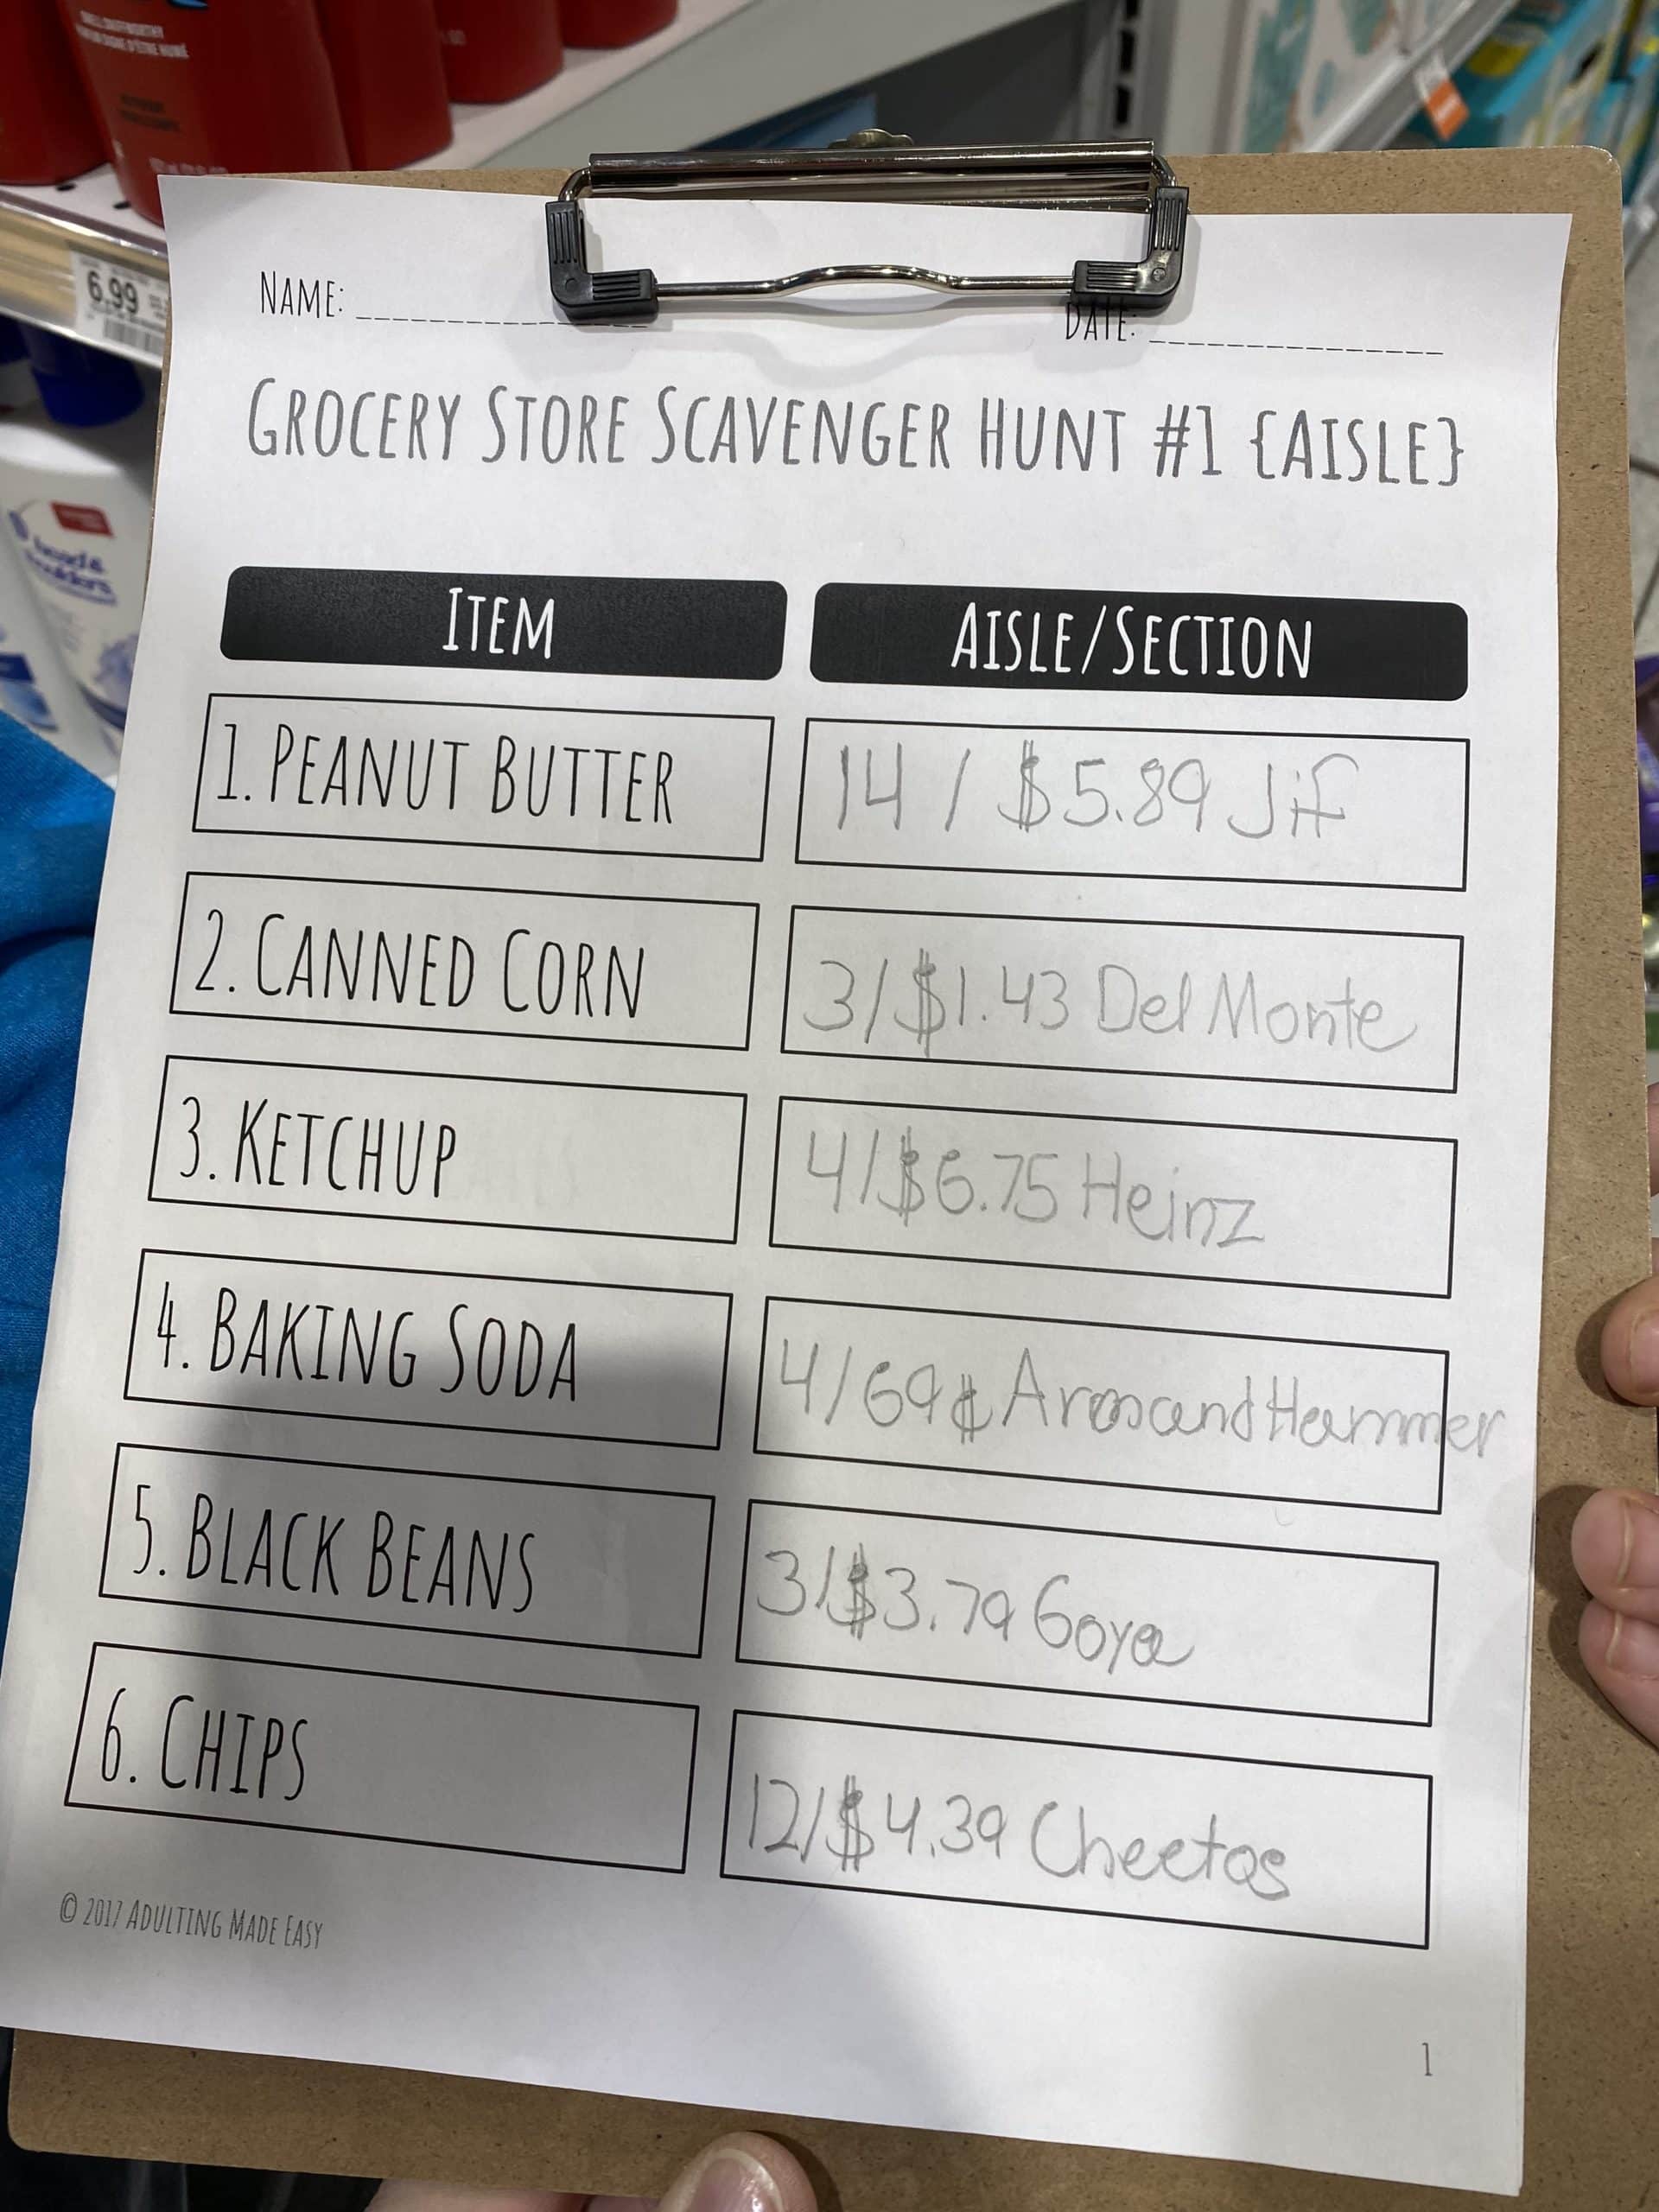 6.99
head &
NAME:
DATE:
GROCERY STORE SCAVENGER HUNT #1 {AISLE}
ITEM AISLE/SECTION
1. PEANUT BUTTER 14 / $5.89 Jif
2. CANNED CORN 3/$1.43 Del Monte
3. KETCHUP 4/$6.75 Heinz
4. BAKING SODA 4/69¢ Arm and Hammer
5. BLACK BEANS 3/$3.79 Goya
6. CHIPS 12/$4.39 Cheetos
© 2017 ADULTING MADE EASY
1